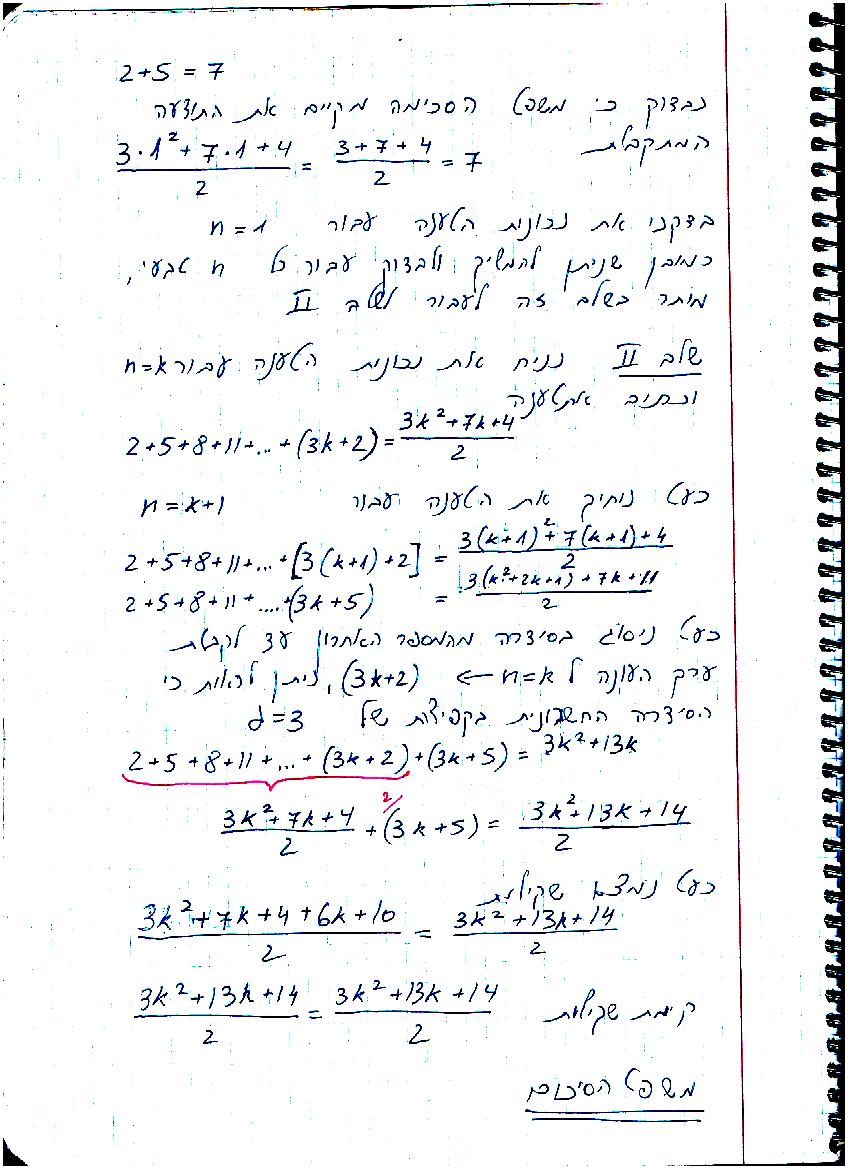 2+5 = 7
נבדוק כי משפט הסכימה מקיים את התוצאה
המתקבלת
(3·1²+7·1+4)/2 = (3+7+4)/2 = 7
בדקנו את נכונות הטענה עבור n=1
כמובן שניתן להמשיך ולבדוק עבור כל n טבעי,
מותר בשלב זה לעבור לשלב II
שלב II נניח את נכונות הטענה עבור n=k
ונכתוב את הטענה
2+5+8+11+...+(3k+2) = (3k²+7k+4)/2
כעת נוכיח את הטענה עבור n=k+1
2+5+8+11+...+[3(k+1)+2] = (3(k+1)²+7(k+1)+4)/2
2+5+8+11+....+(3k+5) = (3(k²+2k+1)+7k+11)/2
כעת ניסוג בסידרה מהמספר האחרון עד לקבלת
ערך העונה ל n=k ← (3k+2), ניתן לראות כי
הסידרה החשבונית בקפיצות של d=3
2+5+8+11+...+(3k+2)+(3k+5) = 3k²+13k
(3k²+7k+4)/2 + 2/(3k+5) = (3k²+13k+14)/2
כעת נמצא שקילות
(3k²+7k+4+6k+10)/2 = (3k²+13k+14)/2
(3k²+13k+14)/2 = (3k²+13k+14)/2 קיימת שקילות
משפט הסיכום